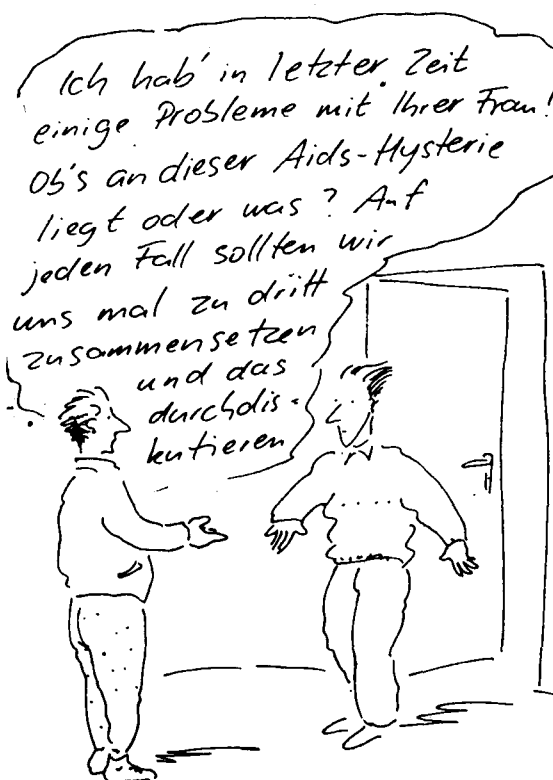 Ich hab' in letzter Zeit
einige Probleme mit Ihrer Frau!
Ob's an dieser Aids-Hysterie
liegt oder was? Auf
jeden Fall sollten wir
uns mal zu dritt
zusammensetzen
und das
durchdis-
kutieren